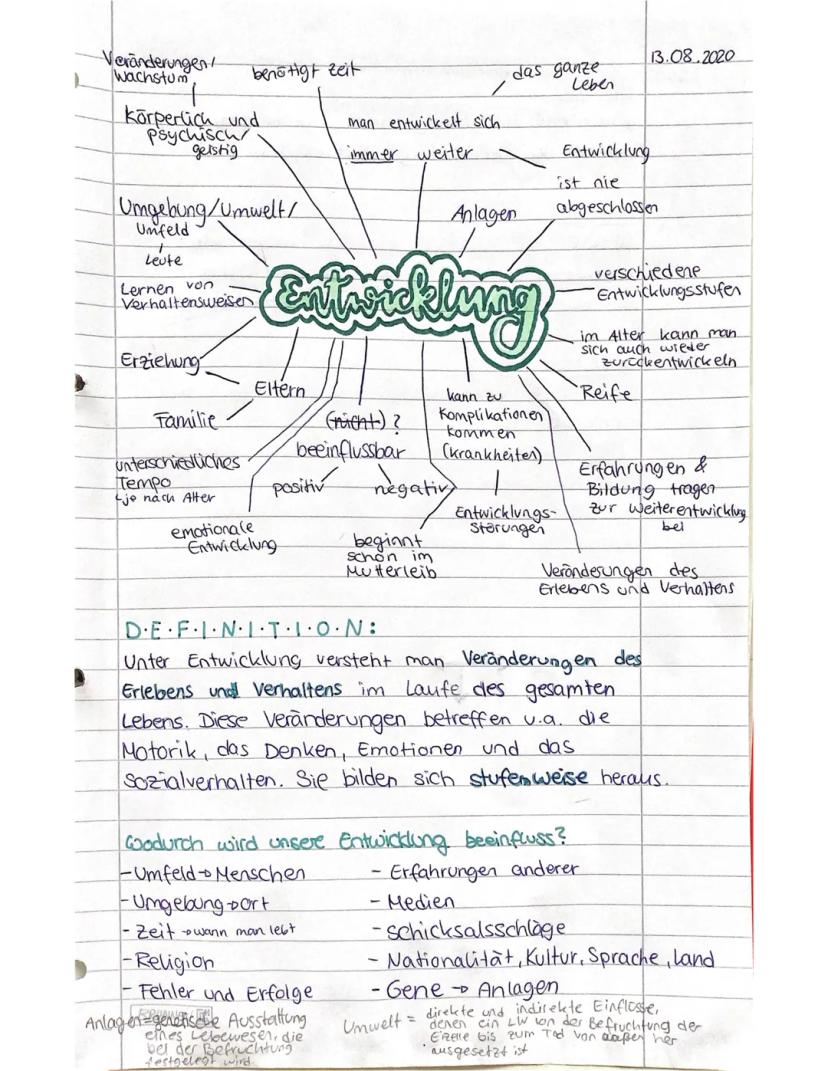 13.08.2020
Veränderungen/
Wachstum
benötigt Zeit
das ganze
Leben
körperlich und
psychisch/
geistig
man entwickelt sich
immer weiter
Entwicklung
ist nie
abgeschlossen
Umgebung/Umwelt/
Umfeld
Leute
Anlagen
Lernen von
Verhaltensweisen
Entwicklung
verschiedene
Entwicklungsstufen
im Alter kann man
sich auch wieder
zurückentwickeln
Erziehung
Eltern
Familie
Reife
(nicht) ?
beeinflussbar
positiv
negativ
kann zu
Komplikationen
kommen
(Krankheiten)
Entwicklungs-
störungen
unterschiedliches
Tempo
↳je nach Alter
emotionale
Entwicklung
beginnt
schon im
Mutterleib
Erfahrungen &
Bildung tragen
zur Weiterentwicklung
bei
Veränderungen des
Erlebens und Verhaltens
D·E·F·I·N·I·T·I·O·N:
Unter Entwicklung versteht man Veränderungen des
Erlebens und Verhaltens im Laufe des gesamten
Lebens. Diese Veränderungen betreffen u.a. die
Motorik, das Denken, Emotionen und das
Sozialverhalten. Sie bilden sich stufenweise heraus.
Wodurch wird unsere Entwicklung beeinfluss?
- Umfeld → Menschen
- Umgebung → Ort
- Zeit → wann man lebt
- Religion
- Fehler und Erfolge
- Erfahrungen anderer
- Medien
- Schicksalsschläge
- Nationalität, Kultur, Sprache, Land
- Gene → Anlagen
Anlagen = genetische Ausstattung
eines Lebewesen, die
bei der Befruchtung
festgelegt wird
Umwelt = direkte und indirekte Einflüsse,
denen ein LW von der Befruchtung der
Eizelle bis zum Tod von außen her
ausgesetzt ist